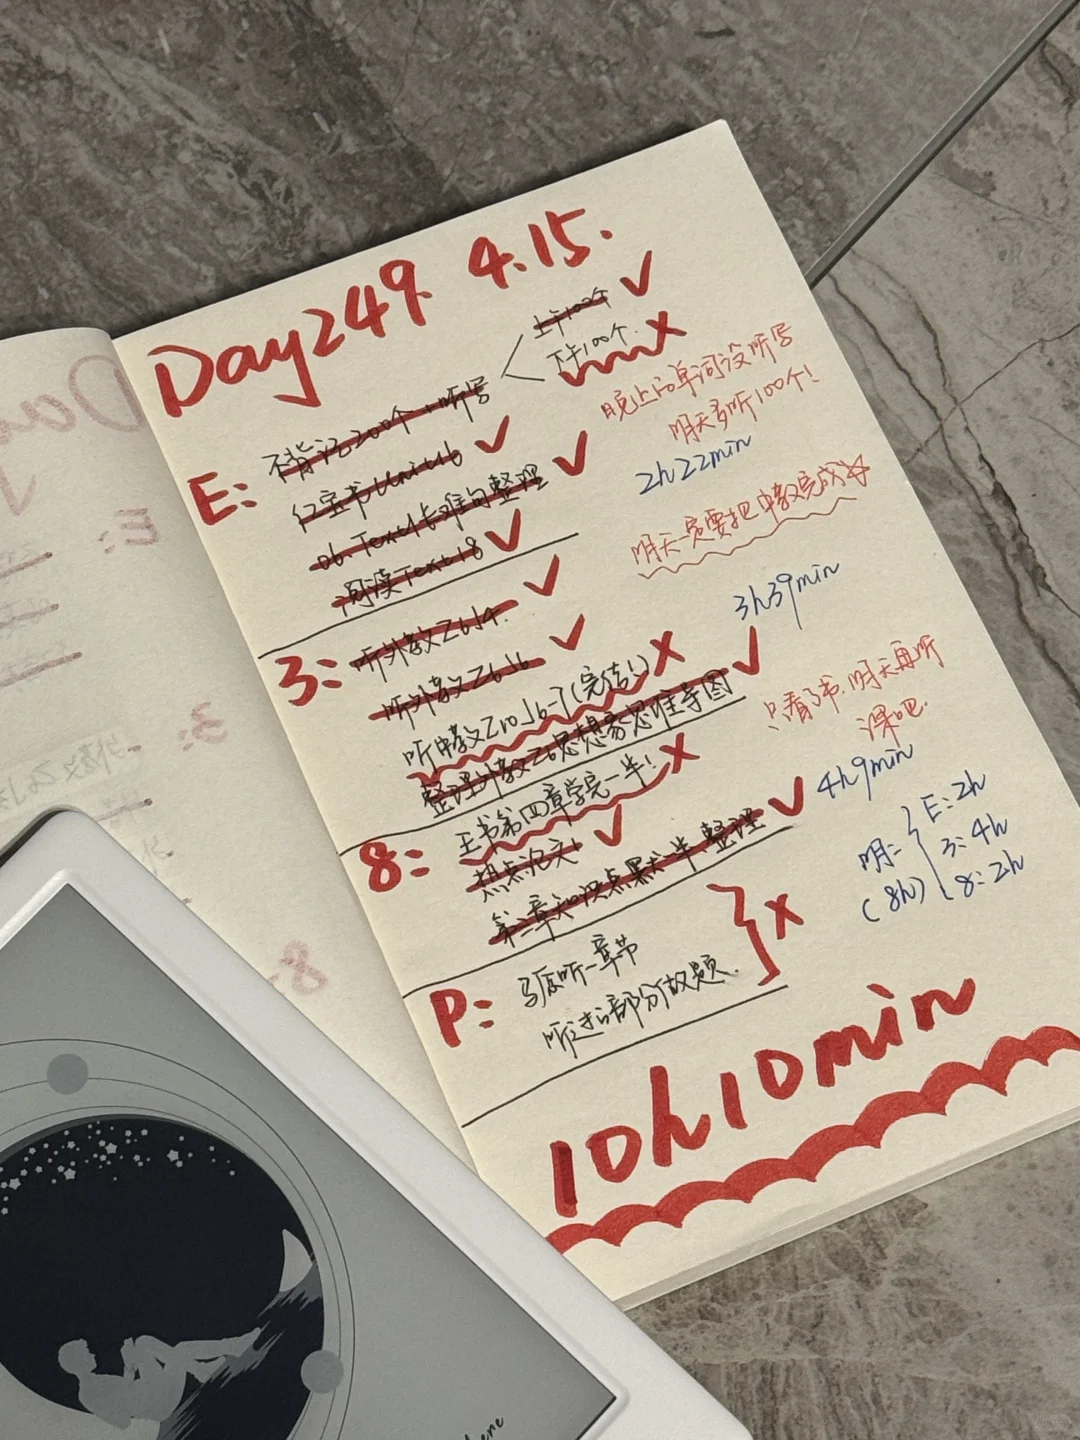 Day249. 4.15.
E:
不背语200个+听写
上午100个
下午100个
晚上的单词没听写
明天多听100个!
仁宝书Unit16
06. Text4长难句整理
阅读Text18
2h22min
明天一定要把中教完成
3:
听外教Z6J4.
听外教Z6J6
听中教Z10J6-7(完结!)
整理外教Z6思想家思维导图
3h39min
只看了书,明天再听
课吧.
8:
王书第四章学完一半!
热点论文1
第二章知识点默一半 整理
4h9min
明:
(8h)
E:2h
3:4h
8:2h
P:
马原听一章节
听过的部分做题.
10h10min